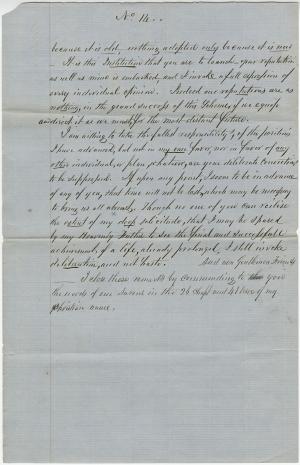 No 14..
because it is old, nothing adopted only because it is new
It is this Institution that you are to launch your reputation
as well as mine is embarked, and I invoke a full expression of
every individual opinion. Indeed our reputations are as
nothing, in the grand success of this Scheme, if we equip
and direct it as we must for the most distant future.
I am willing to take the fullest responsibility of the positions
I have advanced, but not in my own favor, nor in favor of any
other individual, or plan whatever, are your deliberate convictions
to be suppressed. If upon any point, I seem to be in advance
of any of you, that time will not be lost, which may be necessary
to bring us all abreast. Though no one of you can realise
the extent of my deep solicitude, that I may be spared
by my Heavenly Father to see the final and successful
achievement, of a life, already prolonged, I still invoke
deliberation, and not haste. And now Gentlemen Friends
I close these remarks by commending to you
the words of our Saviour in the 26 Chapt and 41 Verse of my
Matthew